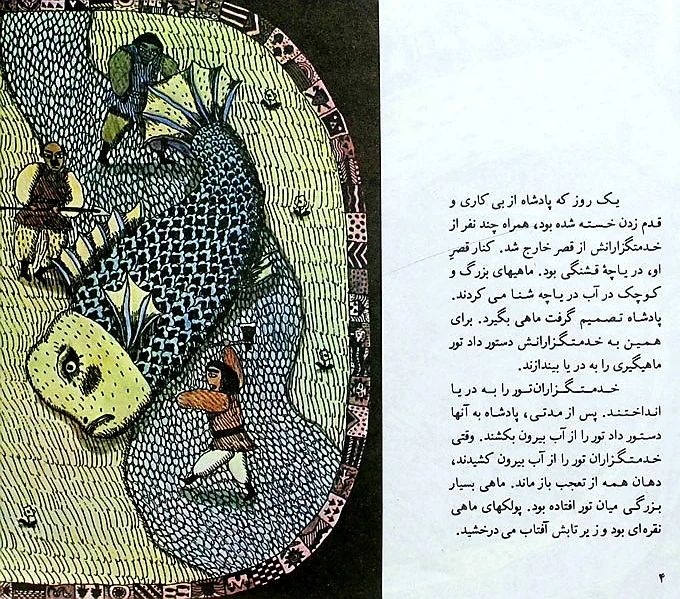 یک روز که پادشاه از بی کاری و
قدم زدن خسته شده بود، همراه چند نفر از
خدمتگزارانش از قصر خارج شد. کنار قصرِ
او، دریاچهٔ قشنگی بود. ماهیهای بزرگ و
کوچک در آب دریاچه شنا می کردند.
پادشاه تصمیم گرفت ماهی بگیرد. برای
همین به خدمتگزارانش دستور داد تور
ماهیگیری را به دریا بیندازند.
خدمتگزاران تور را به دریا
انداختند. پس از مدتی، پادشاه به آنها
دستور داد تور را از آب بیرون بکشند. وقتی
خدمتگزاران تور را از آب بیرون کشیدند،
دهان همه از تعجب باز ماند. ماهی بسیار
بزرگی میان تور افتاده بود. پولکهای ماهی
نقره ای بود و زیر تابش آفتاب می درخشید.
۴